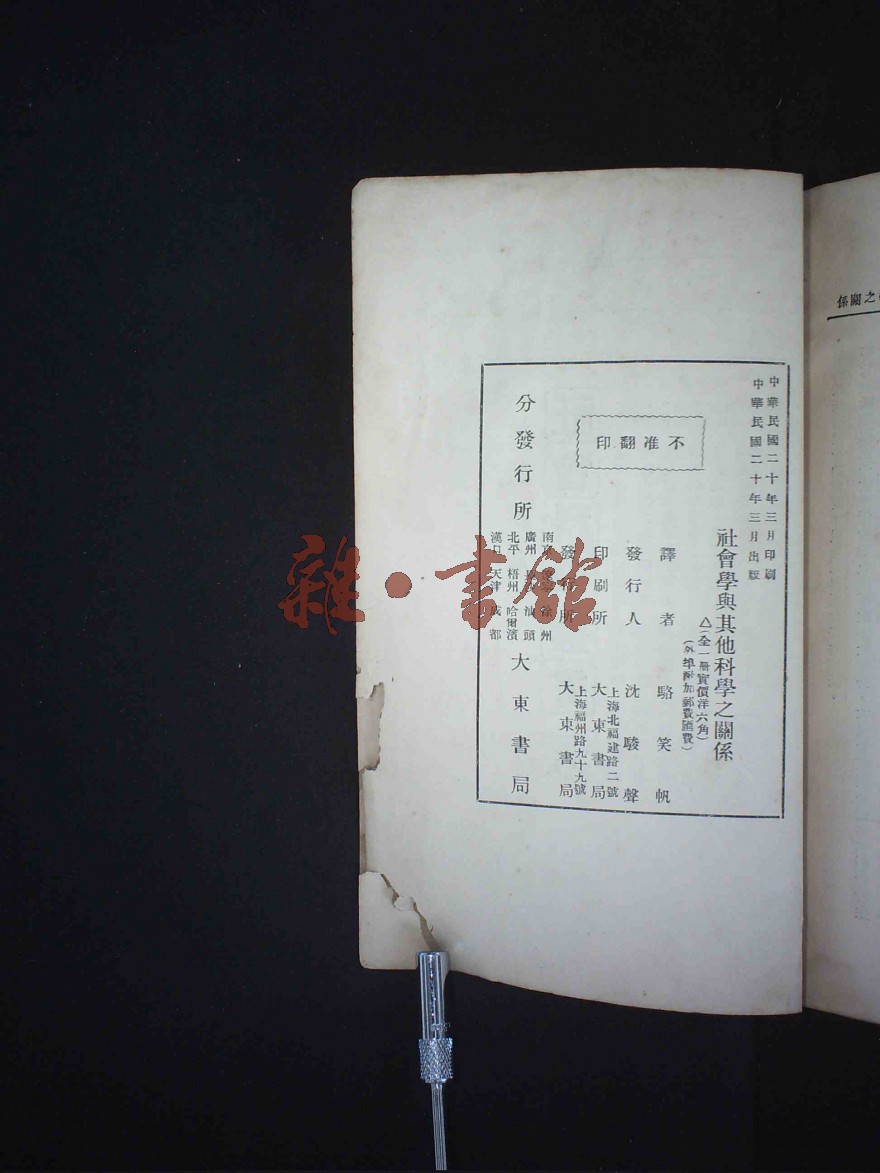 中華民國二十年三月印刷
中華民國二十年三月出版
社會學與其他科學之關係
△(全一册實價洋六角)
(外埠酌加郵費匯費)
不准翻印
譯者 駱笑帆
發行人 沈駿聲
上海北福建路二號
印刷所 大東書局
上海福州路九十九號
發行所 大東書局
分發行所
南 徐州
廣州 汕頭
北平 梧州 哈爾濱
漢口 天津 成都
大東書局
之關係
雜·書館